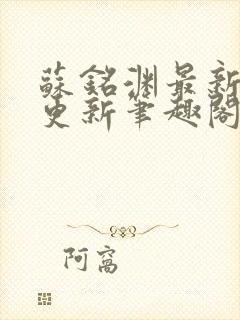 蘇銘淵最新
更新筆趣閣
阿窩